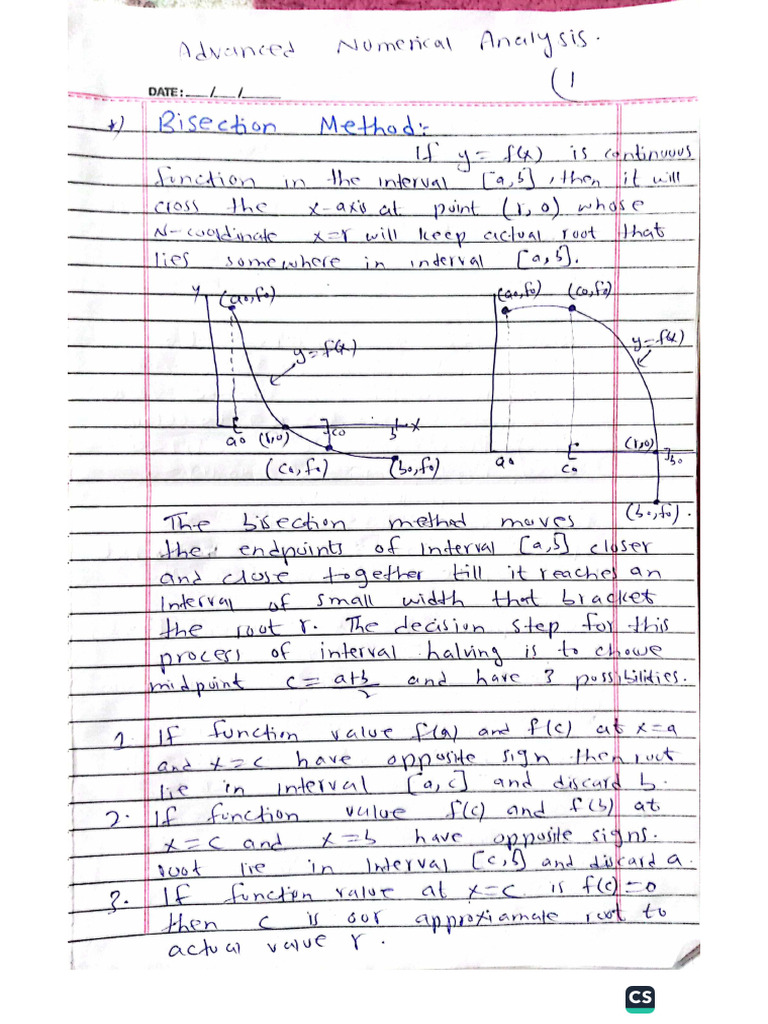 Advanced Numerical Analysis.
(1
DATE: __/__/____
*) Bisection Method:-
If y = f(x) is continuous
function in the interval [a,b], then it will
cross the x-axis at point (r,0) whose
x-coordinate x=r will keep actual root that
lies somewhere in interval [a,b].
y (a0,f0) (a0,f0) (c0,f0)
y=f(x) y=f(x)
a0 (r,0) c0 b x (r,0) b0
(c0,f0) (b0,f0) a0 c0
(b0,f0).
The bisection method moves
the endpoints of interval [a,b] closer
and close together till it reaches an
interval of small width that bracket
the root r. The decision step for this
process of interval halving is to choose
midpoint c = a+b/2 and have 3 possibilities.
1. If function value f(a) and f(c) at x=a
and x=c have opposite sign then root
lie in interval [a,c] and discard b.
2. If function value f(c) and f(b) at
x=c and x=b have opposite signs.
root lie in interval [c,b] and discard a.
3. If function value at x=c is f(c)=0
then c is our approxiamate root to
actual value r.
CS